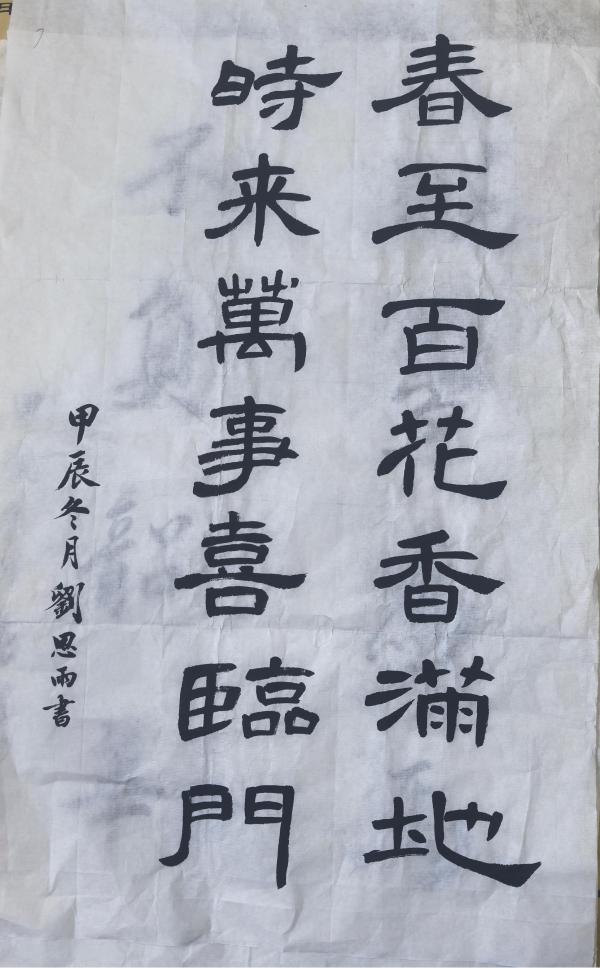 春至百花香滿地
時来萬事喜臨門
甲辰冬月劉思雨書